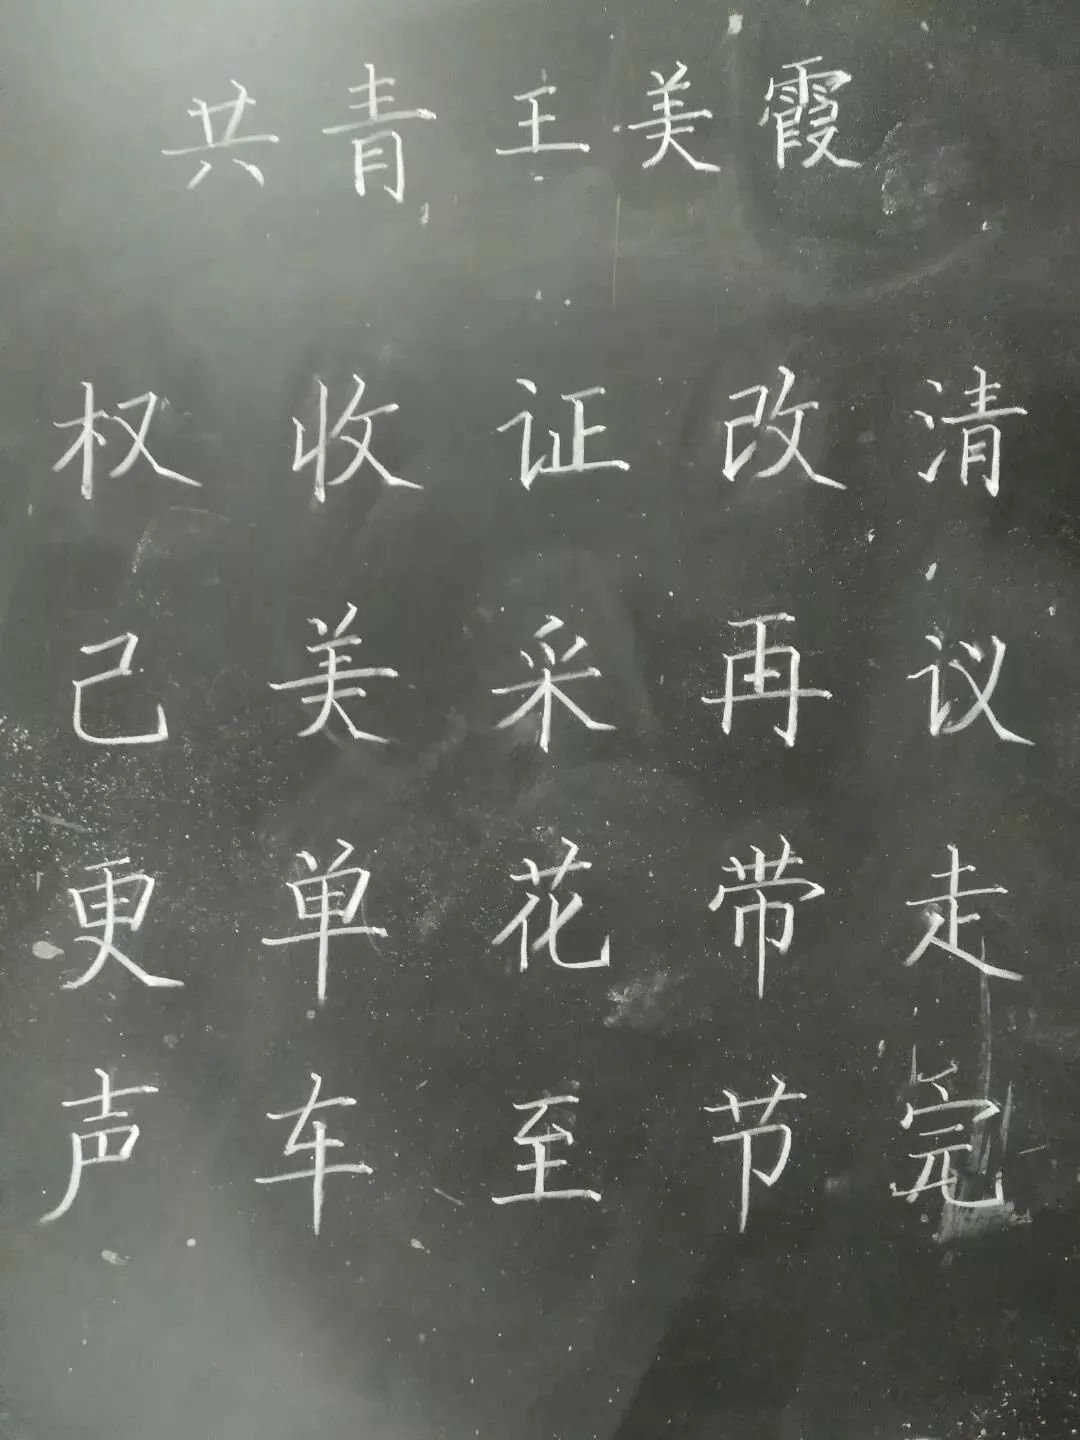 共青王美霞
权收证改清
己美采再议
更单花带走
声车至节完